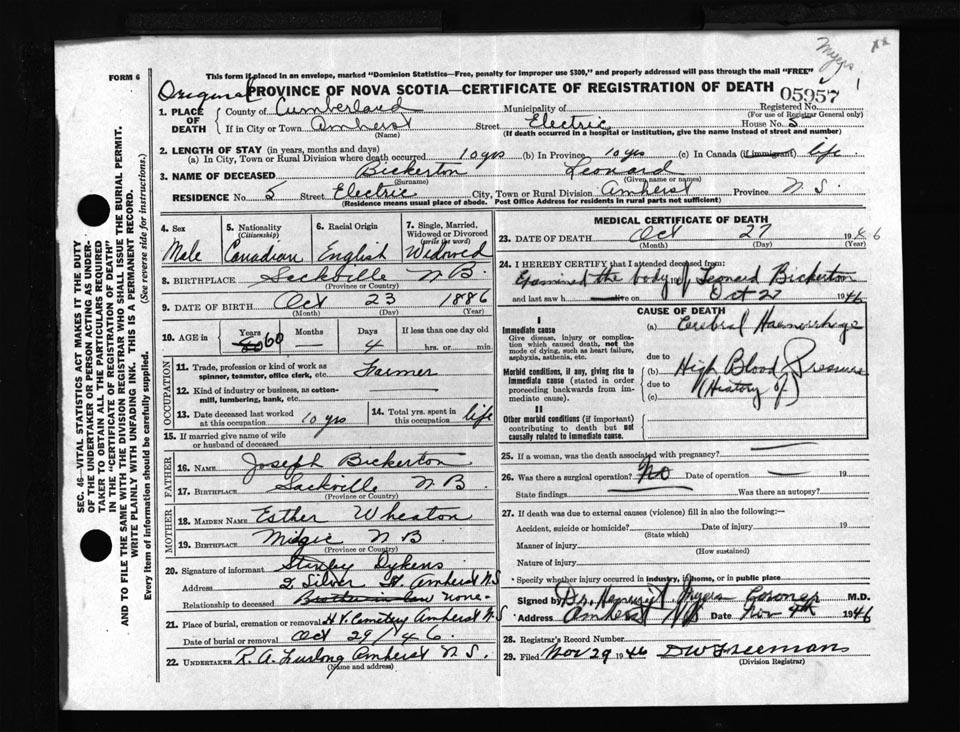 Myers
FORM 6
This form if placed in an envelope, marked "Dominion Statistics—Free, penalty for improper use $300," and properly addressed will pass through the mail "FREE"
Original PROVINCE OF NOVA SCOTIA—CERTIFICATE OF REGISTRATION OF DEATH 05957
1. PLACE OF DEATH County of Cumberland Municipality of Registered No.
(For use of Registrar General only)
If in City or Town Amherst Street Electric House No. 5
(Name) (If death occurred in a hospital or institution, give the name instead of street and number)
2. LENGTH OF STAY (in years, months and days)
(a) In City, Town or Rural Division where death occurred 10 yrs (b) In Province 10 yrs (c) In Canada (if immigrant) life
3. NAME OF DECEASED Bickerton Leonard
(Surname) (Given name or names)
RESIDENCE No. 5 Street Electric City, Town or Rural Division Amherst Province N.S.
(Residence means usual place of abode. Post Office Address for residents in rural parts not sufficient)
SEC. 46—VITAL STATISTICS ACT MAKES IT THE DUTY
OF THE UNDERTAKER OR PERSON ACTING AS UNDER-
TAKER TO OBTAIN ALL THE PARTICULARS REQUIRED
IN THE "CERTIFICATE OF REGISTRATION OF DEATH"
AND TO FILE THE SAME WITH THE DIVISION REGISTRAR WHO SHALL ISSUE THE BURIAL PERMIT.
WRITE PLAINLY WITH UNFADING INK. THIS IS A PERMANENT RECORD.
Every item of information should be carefully supplied. (See reverse side for instructions.)
4. Sex 5. Nationality (Citizenship) 6. Racial Origin 7. Single, Married, Widowed or Divorced (write the word)
Male Canadian English Widowed
8. BIRTHPLACE Sackville N.B.
(Province or Country)
9. DATE OF BIRTH Oct 23 1886
(Month) (Day) (Year)
10. AGE in Years 60 Months — Days 4 If less than one day old hrs. or min.
OCCUPATION
11. Trade, profession or kind of work as spinner, teamster, office clerk, etc. Farmer
12. Kind of industry or business, as cotton-mill, lumbering, bank, etc.
13. Date deceased last worked at this occupation 10 yrs 14. Total yrs. spent in this occupation life
15. If married give name of wife or husband of deceased
FATHER
16. NAME Joseph Bickerton
17. BIRTHPLACE Sackville N B
(Province or Country)
MOTHER
18. MAIDEN NAME Esther Wheaton
19. BIRTHPLACE Midgic N B
(Province or Country)
20. Signature of informant Stanley Dykens
Address 2 Silver St Amherst N S
Relationship to deceased Brother in law none
21. Place of burial, cremation or removal H. V. Cemetery Amherst N.S
Date of burial or removal Oct 29/46
22. UNDERTAKER R. A. Furlong Amherst N.S.
(Name and address)
MEDICAL CERTIFICATE OF DEATH
23. DATE OF DEATH Oct 27 1946
(Month) (Day) (Year)
24. I HEREBY CERTIFY that I attended deceased from:
Examined the body of Leonard Bickerton
and last saw h alive on Oct 27 1946
CAUSE OF DEATH
I
Immediate cause
Give disease, injury or complication which caused death, not the mode of dying, such as heart failure, asphyxia, asthenia, etc.
(a) Cerebral Haemorrhage
due to
Morbid conditions, if any, giving rise to immediate cause (stated in order proceeding backwards from immediate cause).
(b) High Blood Pressure
due to (History of)
(c)
II
Other morbid conditions (if important) contributing to death but not causally related to immediate cause.
25. If a woman, was the death associated with pregnancy?
26. Was there a surgical operation? No Date of operation 19
State findings Was there an autopsy?
27. If death was due to external causes (violence) fill in also the following:—
Accident, suicide or homicide? Date of injury 19
(State which)
Manner of injury
(How sustained)
Nature of injury
Specify whether injury occurred in industry, in home, or in public place
Signed by Dr. Myers Coroner M.D.
Address Amherst N S Date Nov 4th 1946
28. Registrar's Record Number
29. Filed Nov 29 1946 D W Freeman
(Division Registrar)